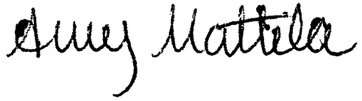 Amy Mattila